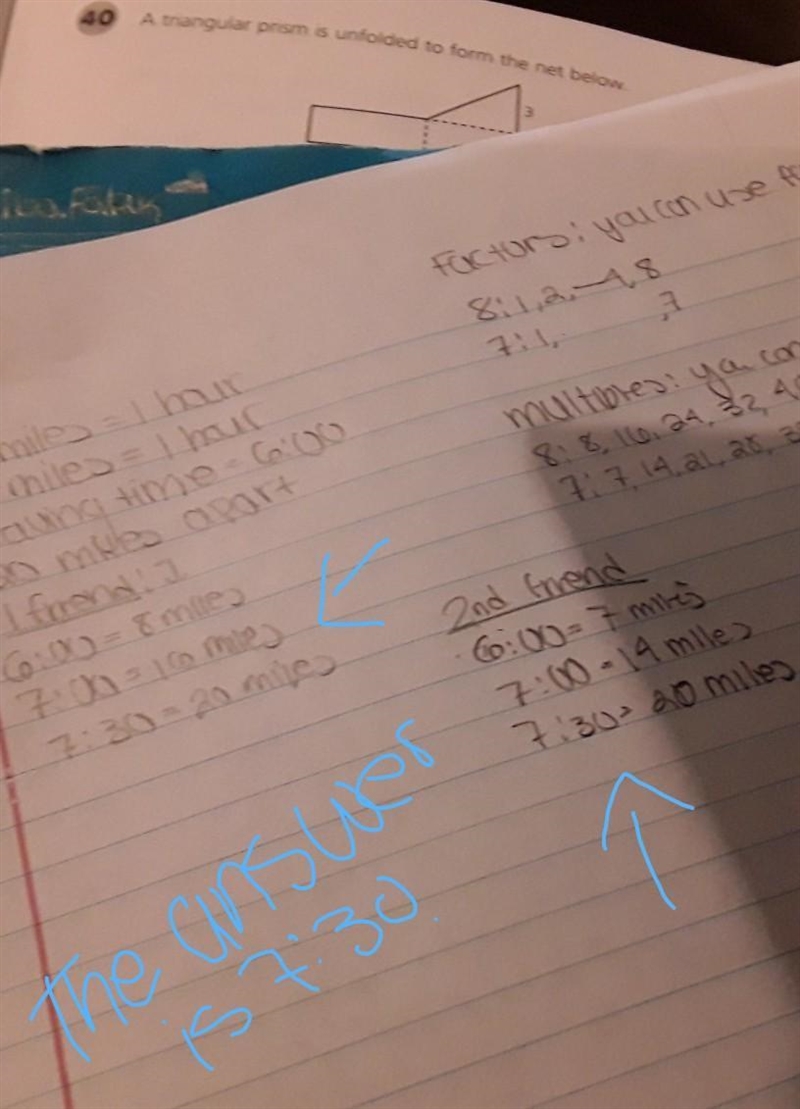 40 A triangular prism is unfolded to form the net below.
3
Factors: you can use
8: 1, 2, 4, 8
7: 1, , 7
multiples: you can
8: 8, 16, 24, 32, 40
7: 7, 14, 21, 28,
miles = 1 hour
miles = 1 hour
time = 6:00
miles apart
1 friend:
6:00 = 8 miles
7:00 = 16 miles
7:30 = 20 miles
2nd friend
6:00 = 7 miles
7:00 = 14 miles
7:30 = 20 miles
The answer
is 7:30.